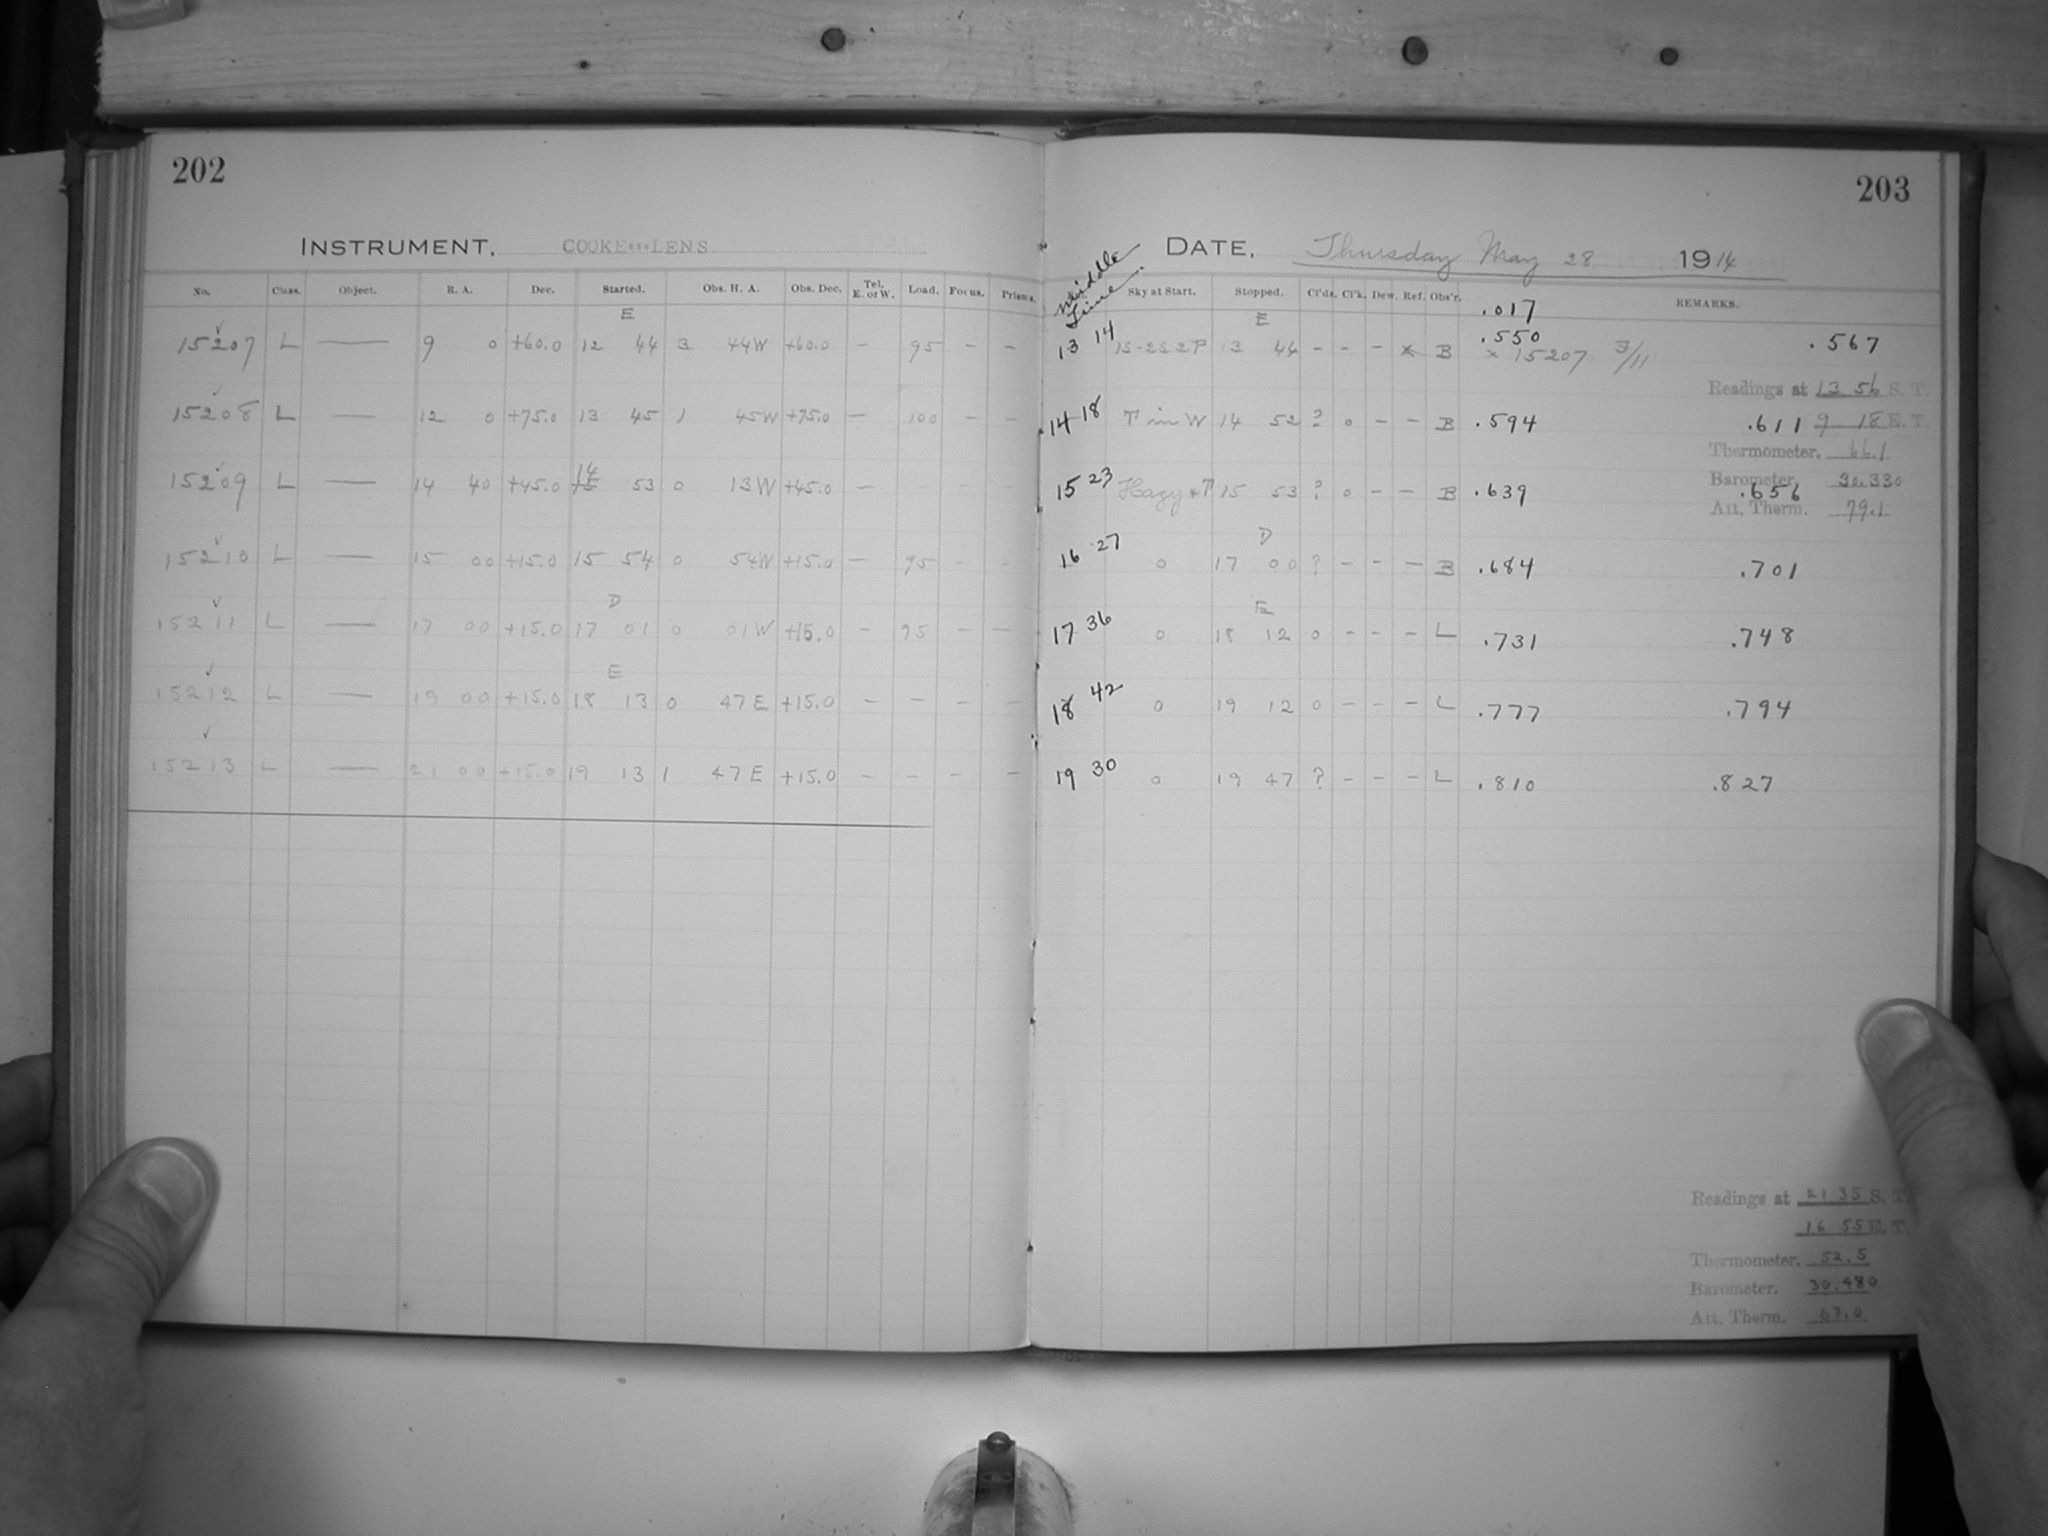 202
INSTRUMENT, COOKE***LENS
No. Class. Object. R. A. Dec. Started. Obs. H. A. Obs. Dec. Tel. E. or W. Load. Focus. Prisms.
E
15207 L — 9 0 +60.0 12 44 3 44W +60.0 — 95 - -
15208 L — 12 0 +75.0 13 45 1 45W +75.0 — 100 - -
14
15209 L — 14 40 +45.0 15 53 0 13W +45.0 — - - -
15210 L — 15 00 +15.0 15 54 0 54W +15.0 — 95 - -
D
15211 L — 17 00 +15.0 17 01 0 01W +15.0 - 95 - -
E
15212 L — 19 00 +15.0 18 13 0 47E +15.0 - - - -
15213 L — 21 00 +15.0 19 13 1 47E +15.0 - - - -
203
DATE, Thursday May 28 1914
Middle Time.
Sky at Start. Stopped. Cl'ds. Cl'k. Dew. Ref. Obs'r. REMARKS.
.017
E
13 14 1S-2S2P 13 44 - - - x B .550 .567
x 15207 3/11
Readings at 13 56 S. T.
14 18 P in W 14 52 ? 0 - - B .594 .611 9 18 E. T.
Thermometer. 66.1
Barometer. 30.330
15 23 Hazy + P 15 53 ? 0 - - B .639 .656
Att. Therm. 79.1
D
16 27 0 17 00 ? - - - B .684 .701
E
17 36 0 18 12 0 - - - L .731 .748
18 42 0 19 12 0 - - - L .777 .794
19 30 0 19 47 ? - - - L .810 .827
Readings at 21 35 S. T.
16 55 E. T.
Thermometer. 52.5
Barometer. 30.480
Att. Therm. 67.0